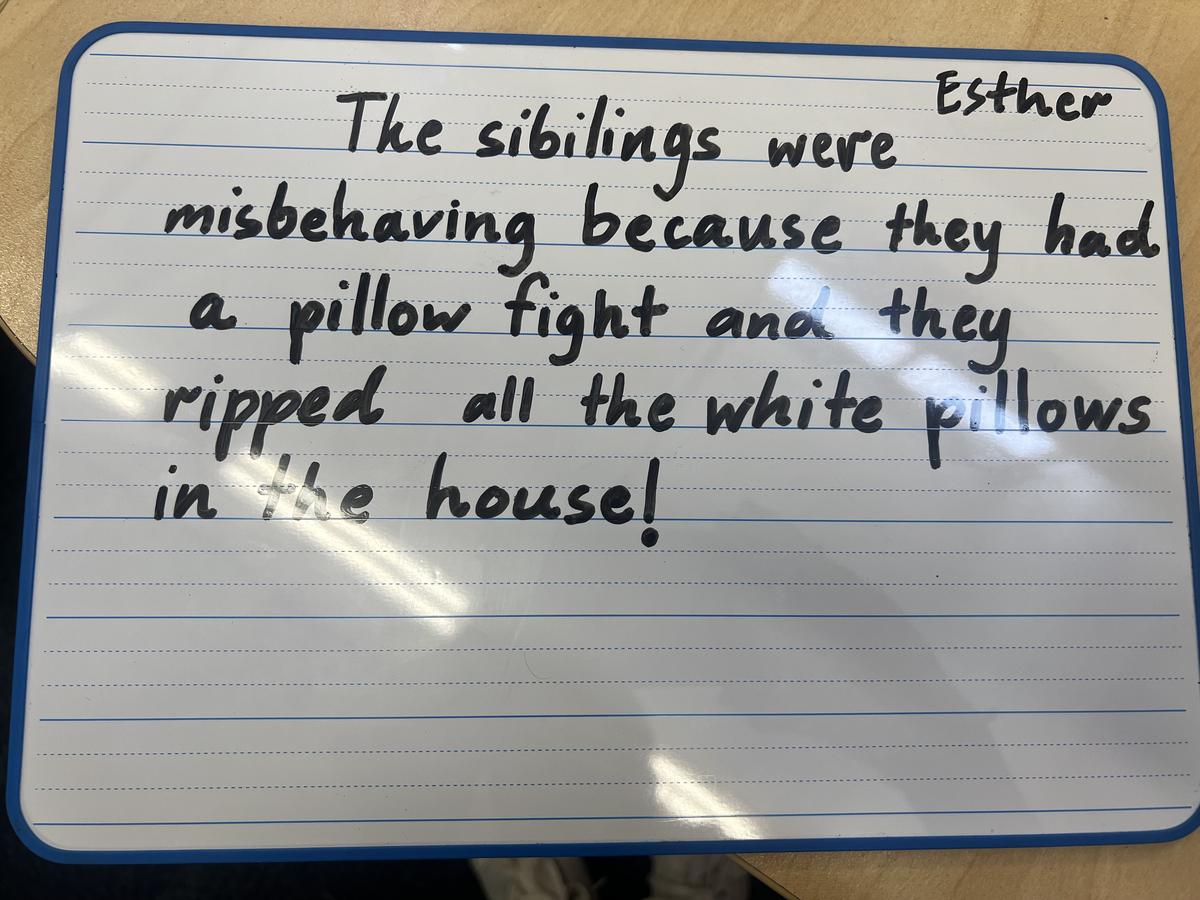 Esther
The sibilings were
misbehaving because they had
a pillow fight and they
ripped all the white pillows
in the house!